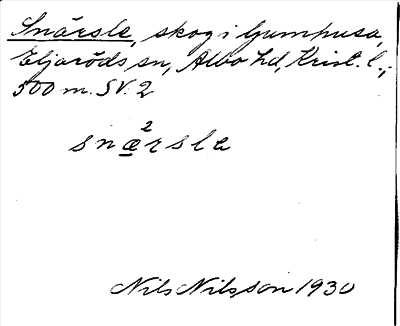 Snärsle, skog i Gumhusa,
Eljaröds sn, Albo hd, Krist. l.,
500 m. SV. 2
snæ²rsle
Nils Nilsson 1930